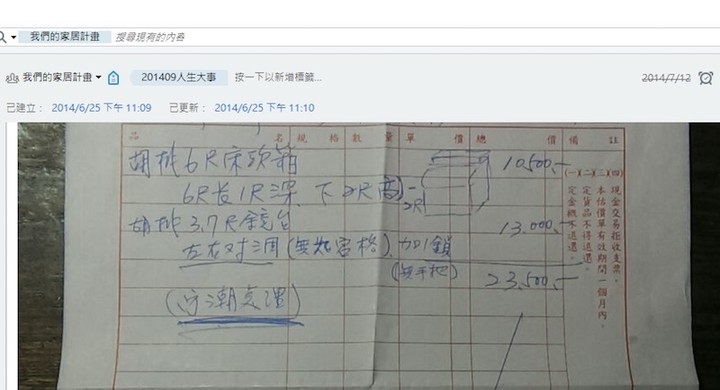 我們的家居計畫 搜尋現有的內容
我們的家居計畫 201409人生大事 按一下以新增標籤... 2014/7/12
已建立： 2014/6/25 下午 11:09 已更新： 2014/6/25 下午 11:10
品 名 規 格 數 量 單 價 總 價 備 註
胡桃6尺床頭箱 10,500.-
6R長1R深、下2R高)
2R
胡桃3.7尺鏡台 13,000.-
左右对调(無 格)、加1鎖
(無手把) 23,500.-
(防潮處理)
(四)現金交易拒收支票。
(三)本估價單有效期間一個月內。
(二)定貨品不得退還。
(一)定金概不退還。